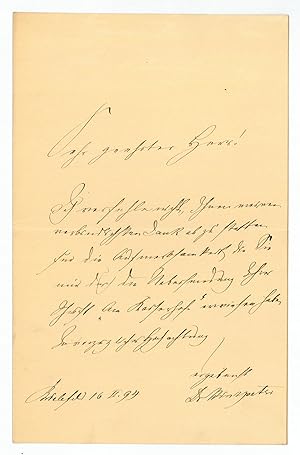 Sehr geehrter Herr!
Ich verfehle nicht, Ihnen meinen
verbindlichsten Dank abzustatten
für die Aufmerksamkeit, die Sie
mir durch die Uebersendung Ihrer
Schrift "Am Kaiserhof" erwiesen haben
In vorzüglicher Hochachtung
ergebenst
Bielefeld 16 II. 94 Dr Hinzpeter